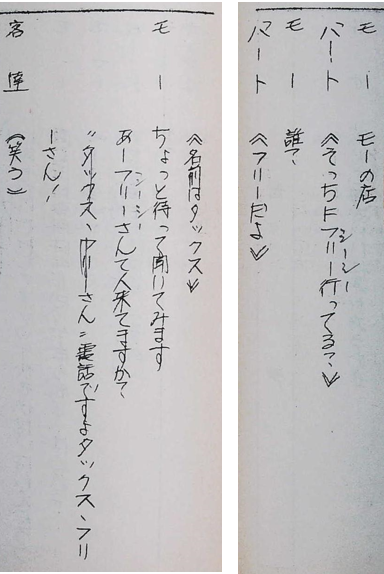 モー　モーの店
バート　《そっちにフリー行ってる？》
シーシー
モー　誰？
バート　《フリーだよ》
《名前はタックス》
モー　ちょっと待って聞いてみます
シーシー
あーフリーさんて人来てますか？
"タックス、フリーさん" 電話ですよタックス、フリ
ーさん！
客達　《笑う》